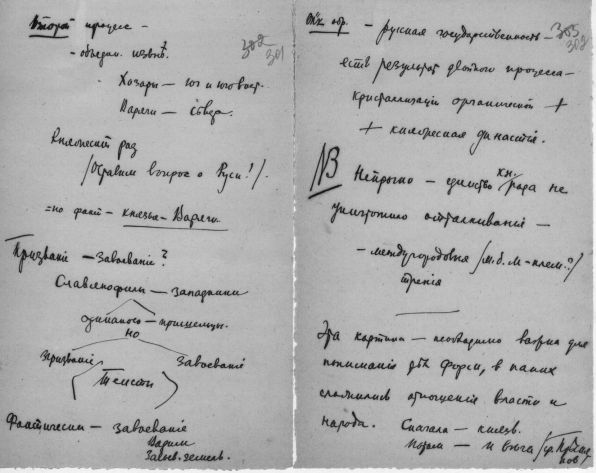 Второй процесс —
- объедин. извнѣ.
302
301
Хозары — юг и юговост.
Варяги — сѣвер.
раз
/Оставим вопрос о Руси!/.
= но факт — князья — Варяги.
Призваніе — Завоеваніе?
Славянофилы — западники
одинаково — пришельцы.
но
призваніе
Завоеваніе
Фактически — завоеваніе
Варяги
Завоев. земель.
обр. — русская государственность —
303
302
есть результат двойного процесса —
кристаллизаціи органической +
+ княжеская династія.
NB Непрочно — единство кн. рода не
уничтожило отталкиваніе —
— междугородовыя /м.б. м-плем.?/
тренія
Эта картина — необходимо важна для
пониманія дѣл форм, в каких
сложились отношенія власти и
народа. Сначала — князь.
Потом — и вѣча